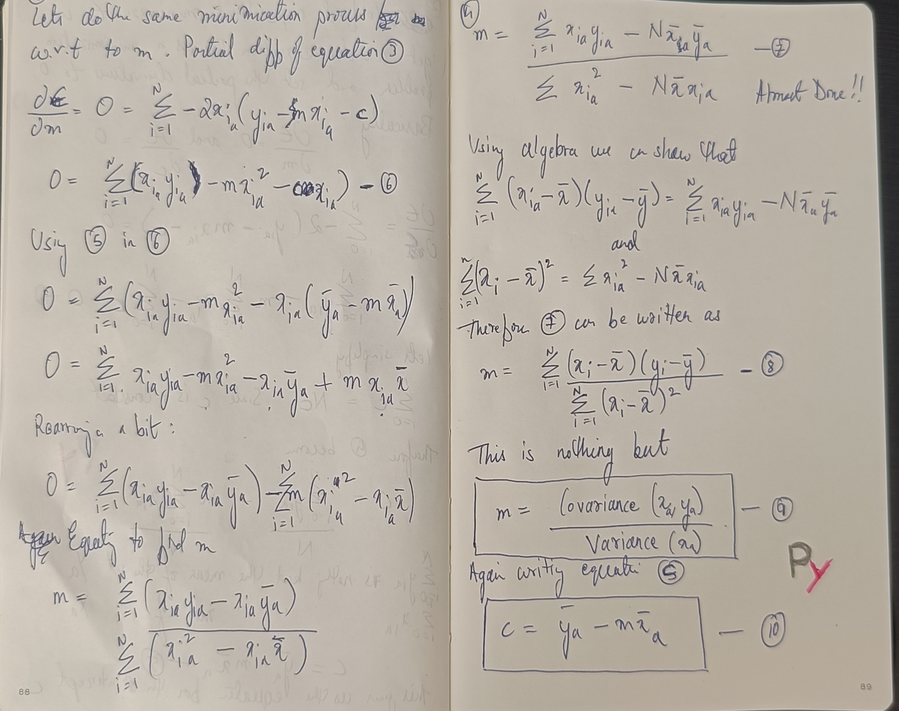 Lets do the same minimication process
w.r.t to m. Partial diff of equation ③
∂E/∂m = 0 = Σ_{i=1}^{N} -2x_{ia} (y_{ia} - m x_{ia} - c)
0 = Σ_{i=1}^{N} (x_{ia} y_{ia} - m x_{ia}^2 - c x_{ia}) - ⑥
Using ⑤ in ⑥
0 = Σ_{i=1}^{N} (x_{ia} y_{ia} - m x_{ia}^2 - x_{ia} (ȳ_a - m x̄_a))
0 = Σ_{i=1}^{N} x_{ia} y_{ia} - m x_{ia}^2 - x_{ia} ȳ_a + m x_{ia} x̄
Rearring a bit :
0 = Σ_{i=1}^{N} (x_{ia} y_{ia} - x_{ia} ȳ_a) - Σ_{i=1}^{N} m (x_{ia}^2 - x_{ia} x̄)
Equatig to find m
m = Σ_{i=1}^{N} (x_{ia} y_{ia} - x_{ia} ȳ_a) / Σ_{i=1}^{N} (x_{ia}^2 - x_{ia} x̄)
88
m = Σ_{i=1}^{N} x_{ia} y_{ia} - N x̄_a ȳ_a / Σ x_{ia}^2 - N x̄ x_{ia} - ⑦
Almost Done!!
Using algebra we can show that
Σ_{i=1}^{N} (x_{ia} - x̄)(y_{ia} - ȳ) = Σ_{i=1}^{N} x_{ia} y_{ia} - N x̄_a ȳ_a
and
Σ_{i=1}^{N} (x_i - x̄)^2 = Σ x_{ia}^2 - N x̄ x_{ia}
Therefore ⑦ can be written as
m = Σ_{i=1}^{N} (x_i - x̄)(y_i - ȳ) / Σ_{i=1}^{N} (x_i - x̄)^2 - ⑧
This is nothing but
m = Covariance (x_a, y_a) / Variance (x_a) - ⑨
Again writig equatin ⑤
c = ȳ_a - m x̄_a - ⑩
Py
89